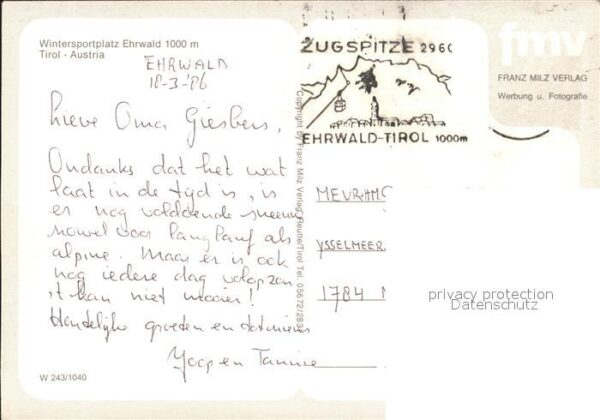 Wintersportplatz Ehrwald 1000 m
Tirol - Austria
EHRWALD
18-3-'86
Lieve Oma Giesbers,
Ondanks dat het wat
laat in de tijd is, is
er nog voldoende sneeuw
zowel voor langlauf als
alpine. Maar er is ook
nog iedere dag volop zon
't kan niet mooier!
Hartelijke groeten en
Jaap en
W 243/1040
Copyright by Franz Milz Verlag Reutte/Tirol Tel. 05672/283
ZUGSPITZE 296
EHRWALD-TIROL 1000m
fmv
FRANZ MILZ VERLAG
Werbung u. Fotografie
MEVR.
YSSELMEER
1784
privacy protection
Datenschutz